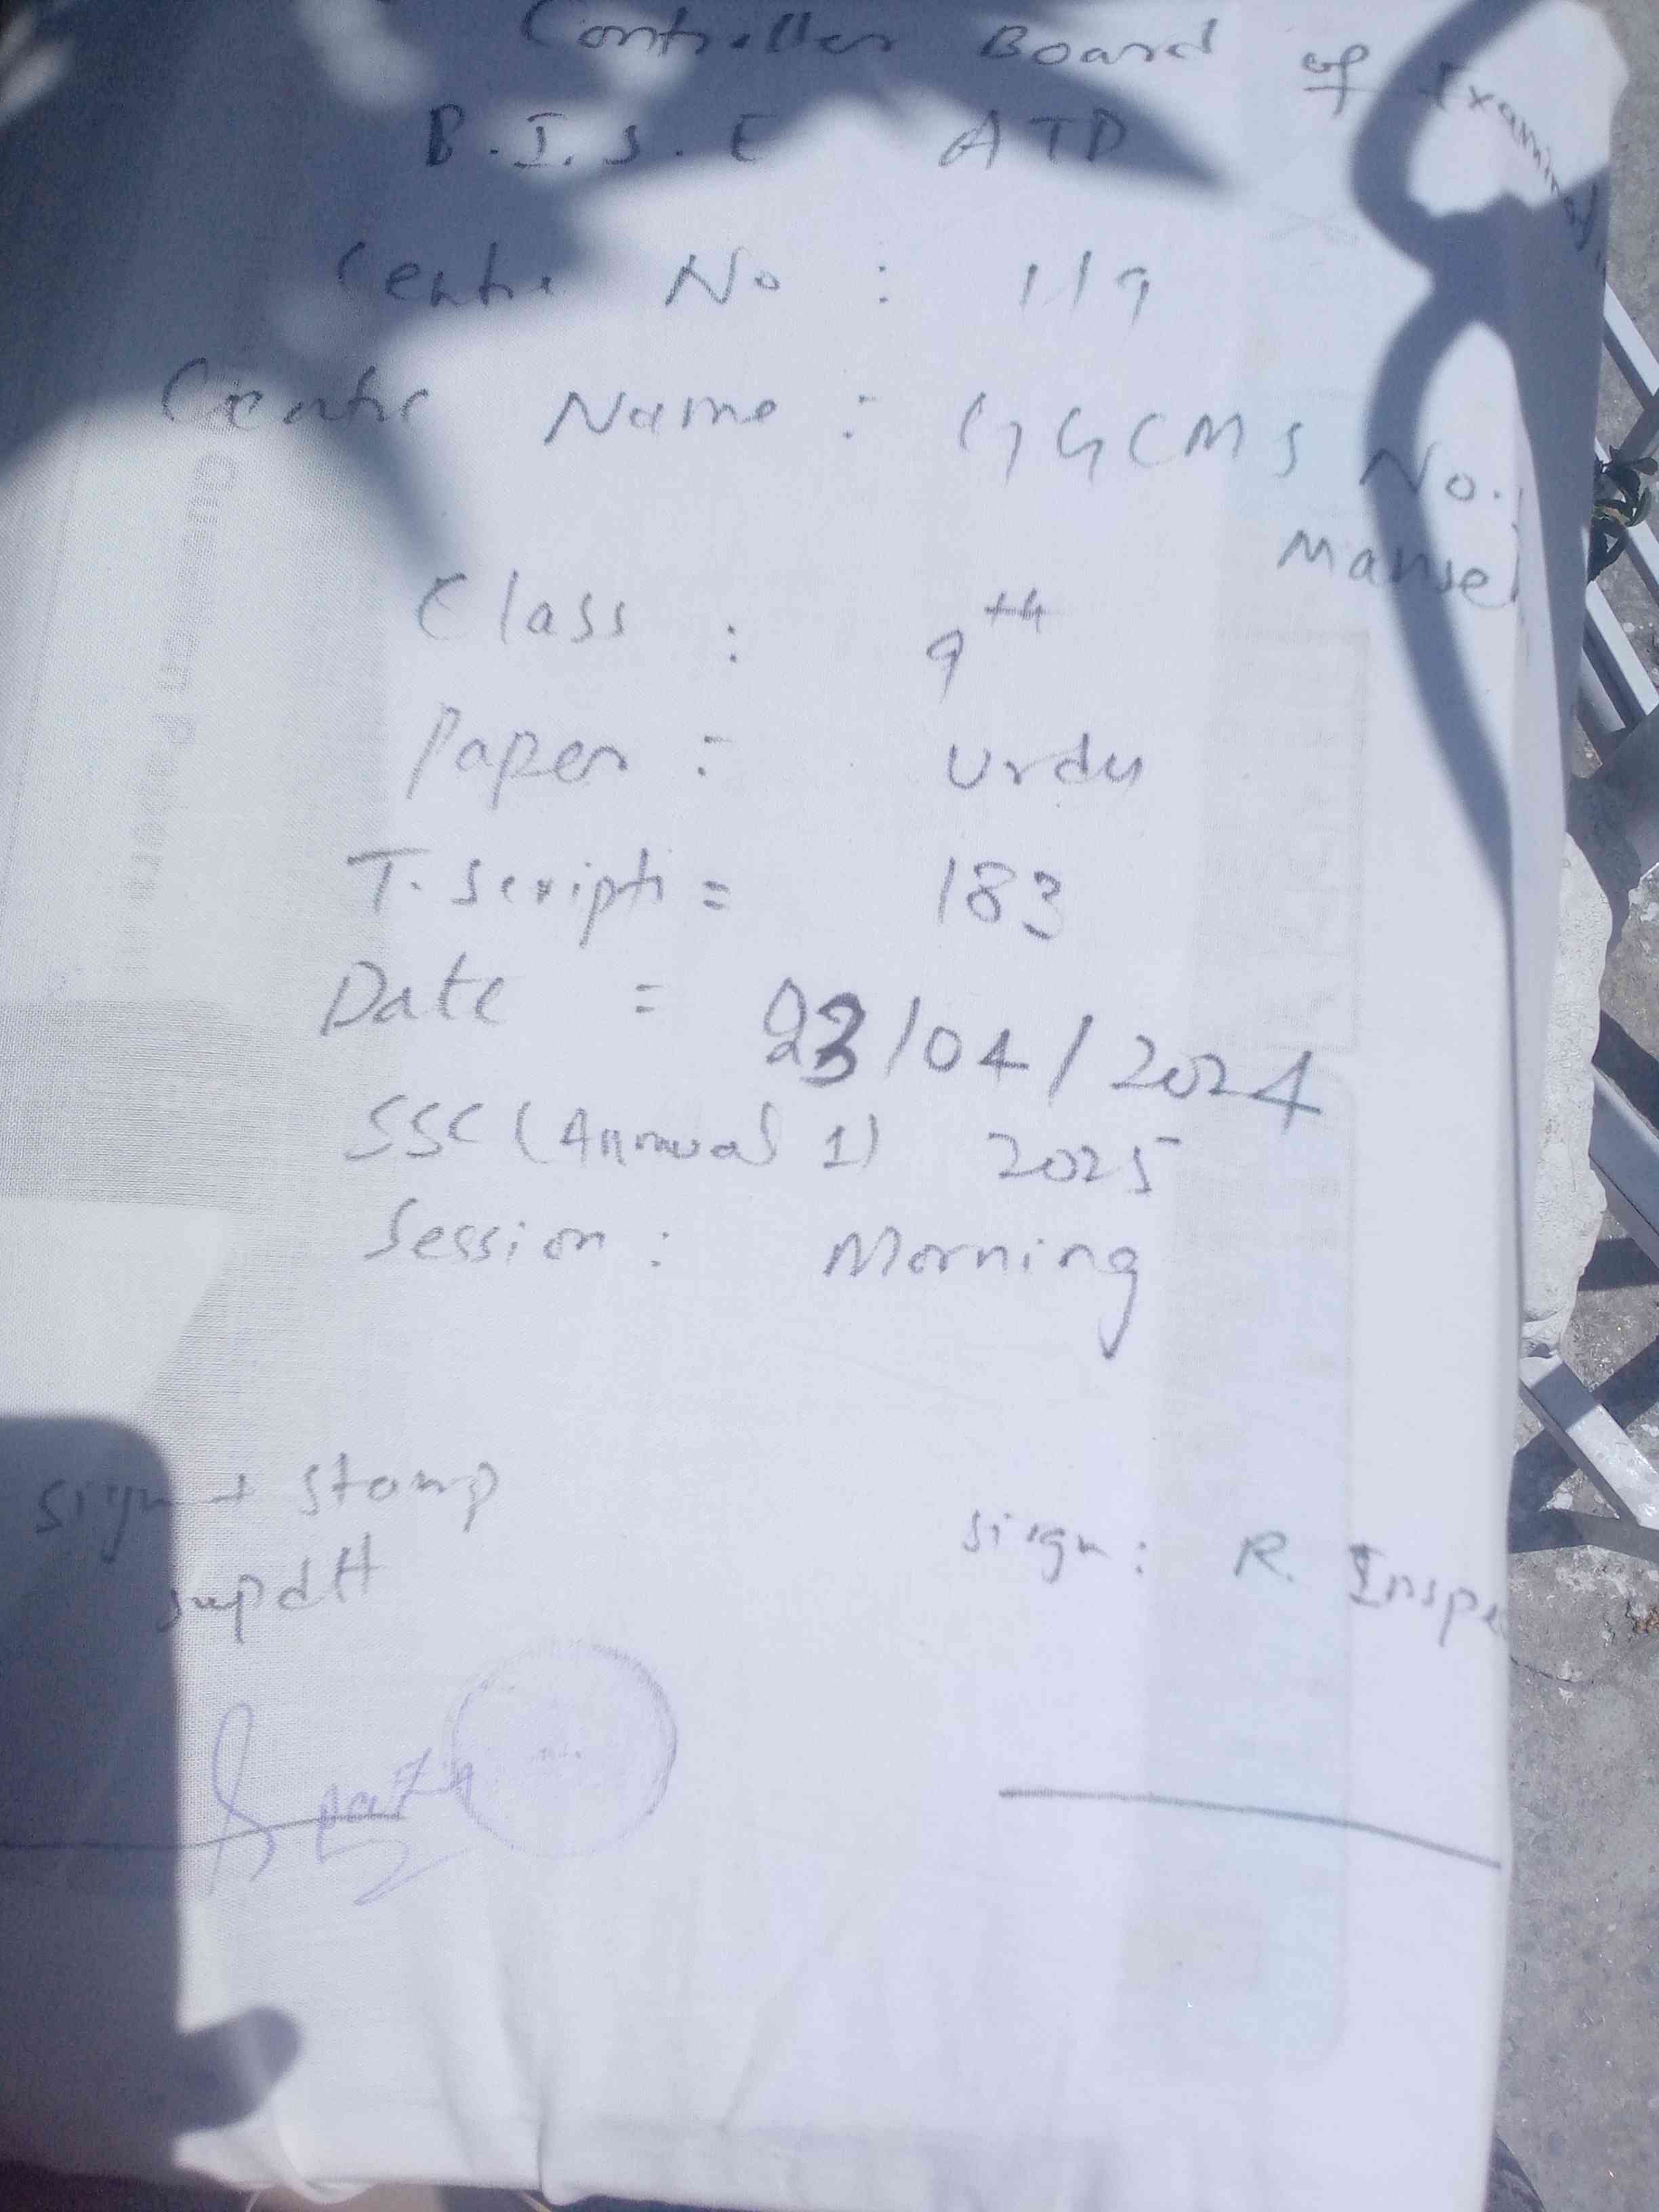 Controller Board of Examina
B.I.S.E ATD
Centre No : 119
Centre Name : GGCMS No.
Manseh
Class : 9th
Paper : Urdu
T. Scripts = 183
Date = 23/04/2024
SSC (Annual 1) 2025
Session : Morning
sign + stamp
supdtt
sign : R. Inspe